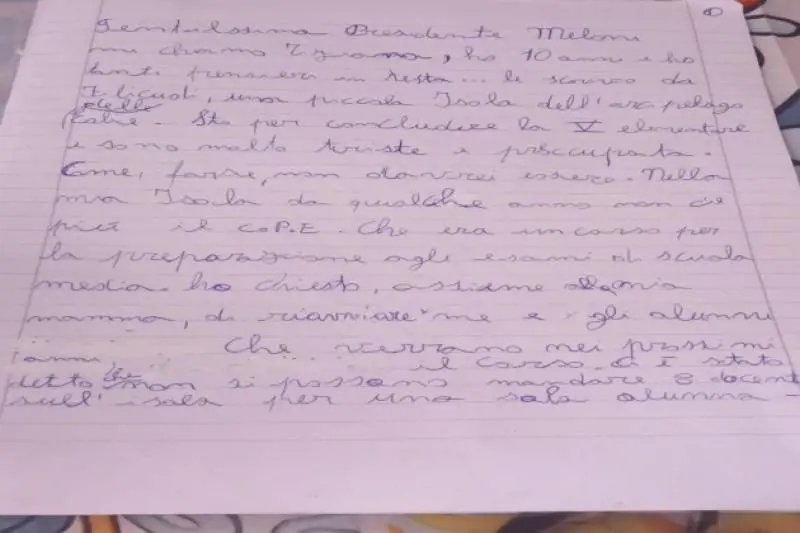 ①
Gentilissima Presidente Meloni
mi chiamo Tiziana, ho 10 anni e ho
tanti pensieri in testa... le scrivo da
Filicudi, una piccola Isola dell'arcipelago
delle Eolie. Sto per concludere la V elementare
e sono molto triste e preoccupata.
Come, forse, non dovrei essere. Nella
mia Isola da qualche anno non c'è
più il C.P.E. Che era un corso per
la preparazione agli esami di scuola
media. ho chiesto, assieme alla mia
mamma, di riavviare per me e gli alunni
Che verranno nei prossimi
anni, il corso. Ci è stato
detto che non si possono mandare 8 docenti
sull'isola per una sola alunna -